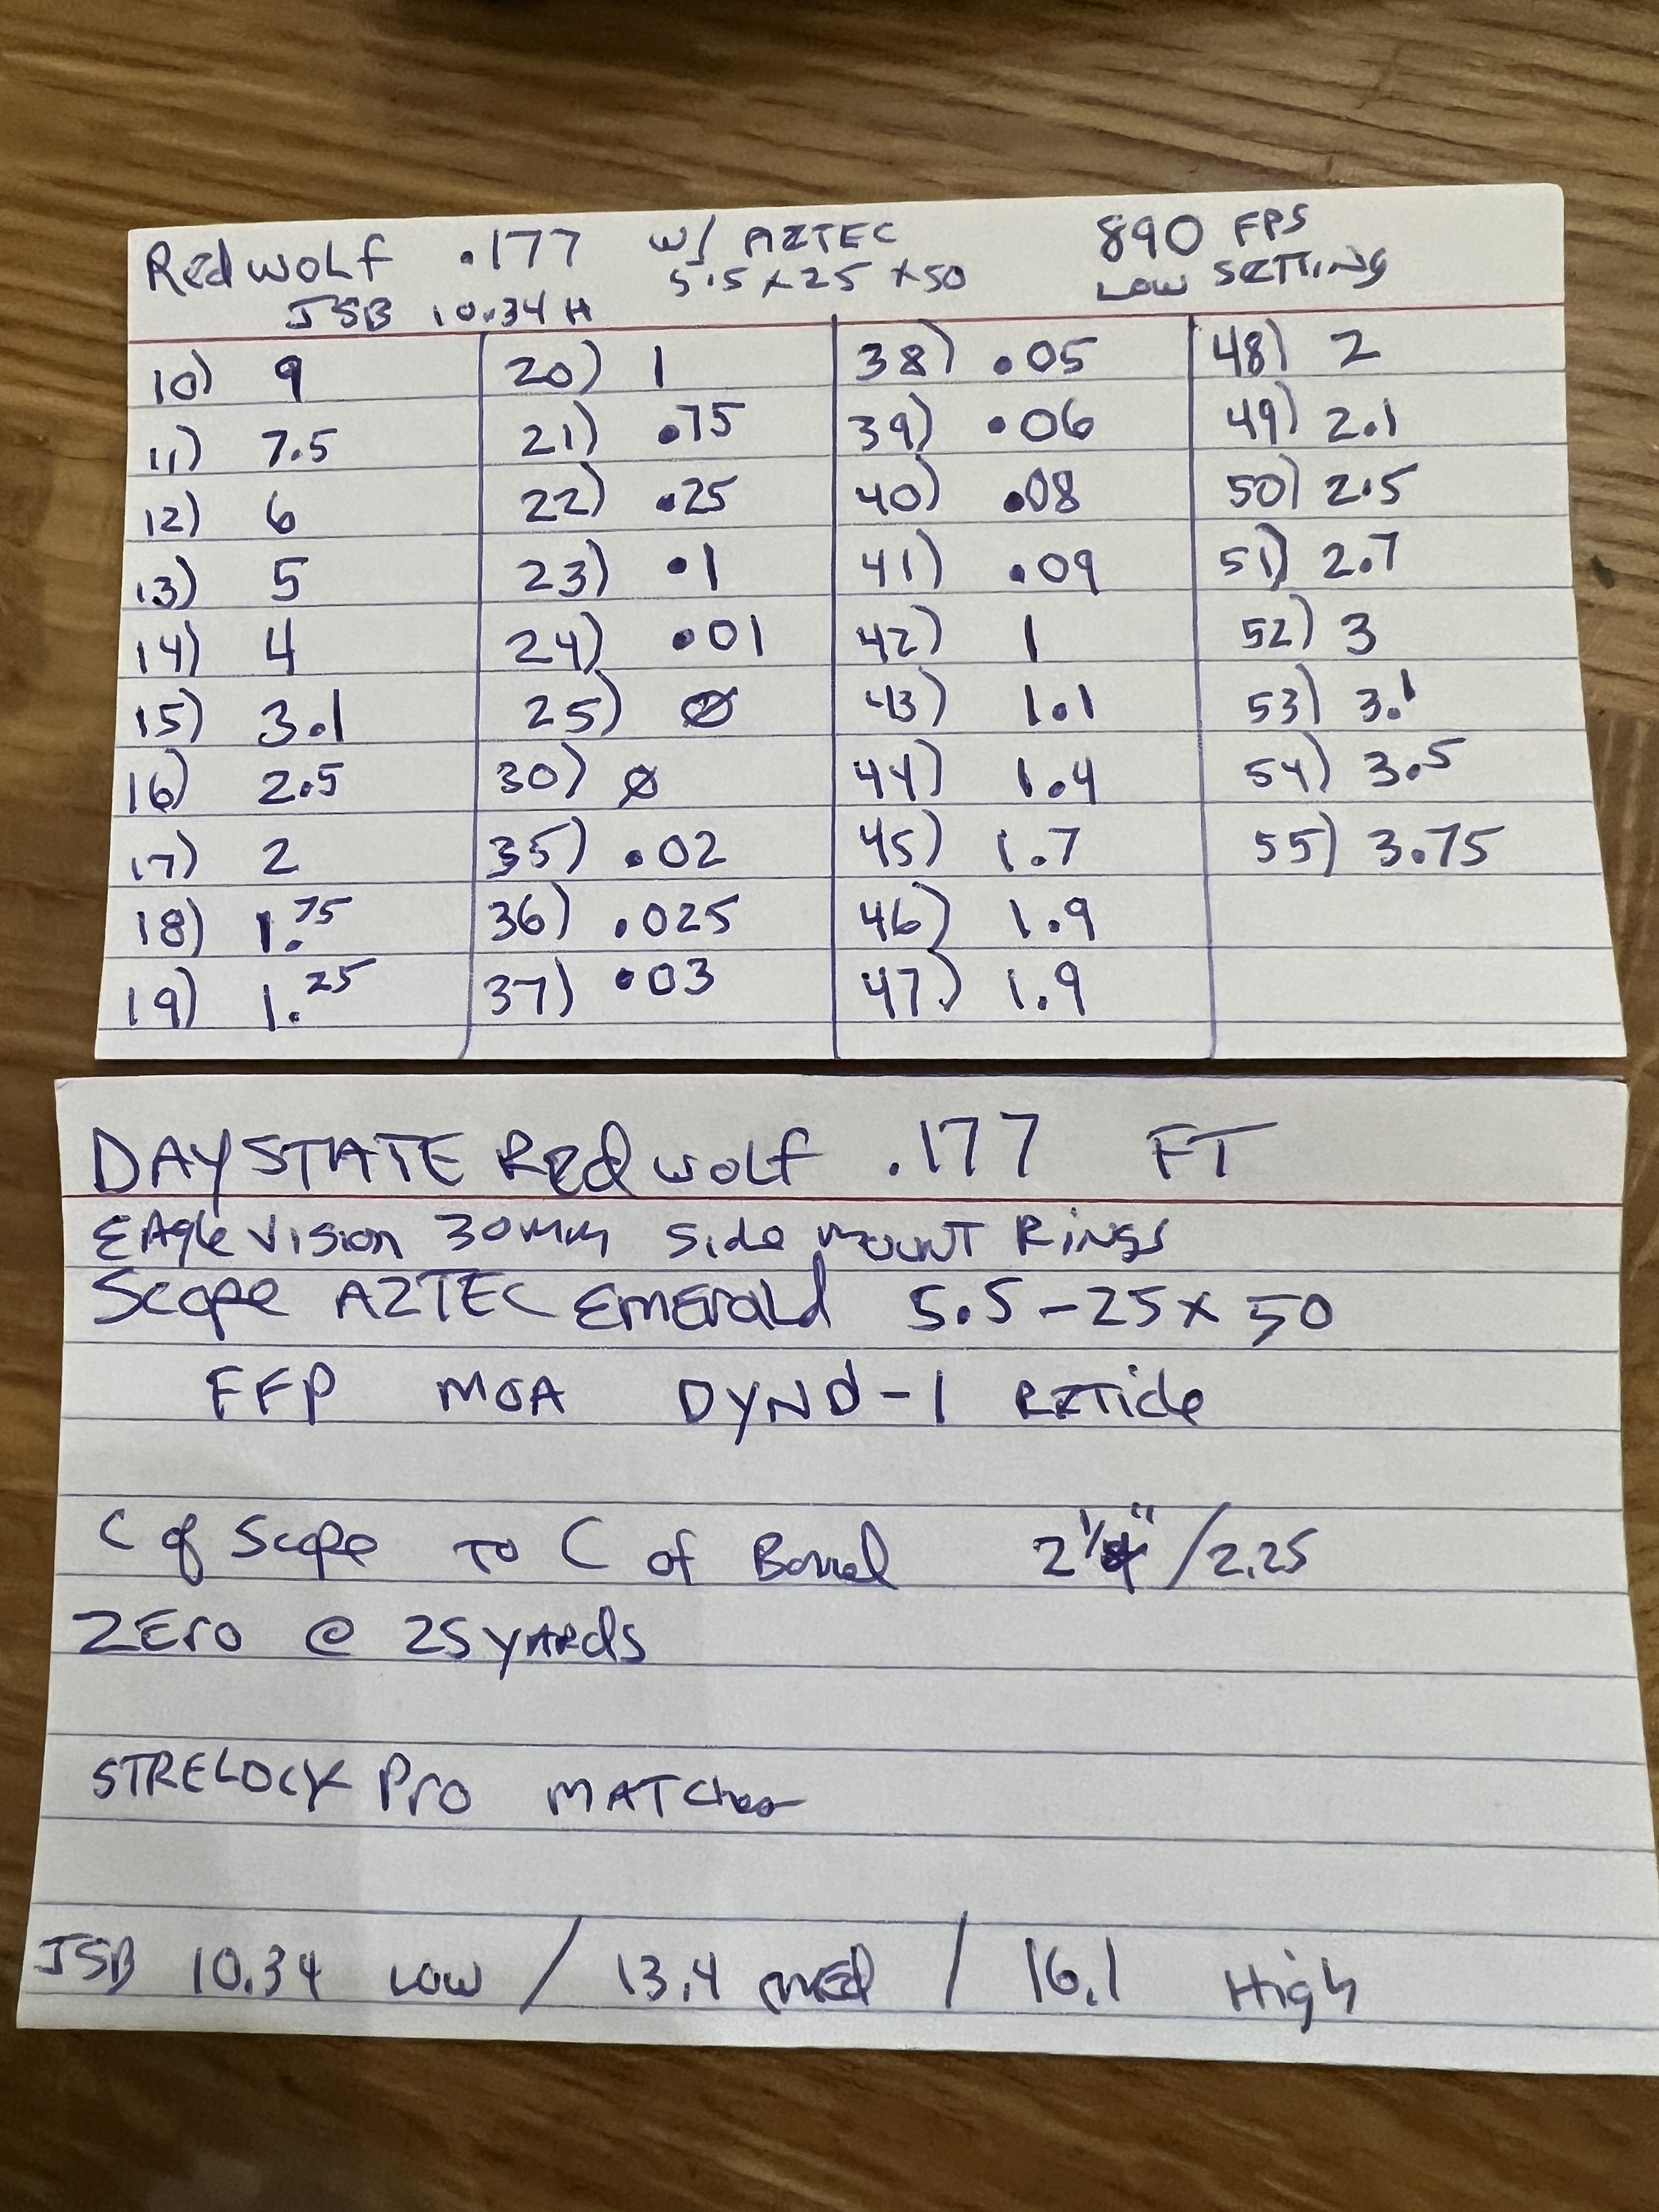 Redwolf .177 w/ AZTEC 890 FPS
JSB 10.34 H 5.5 x 25 x 50 LOW SETTING
10) 9
11) 7.5
12) 6
13) 5
14) 4
15) 3.1
16) 2.5
17) 2
18) 1.75
19) 1.25
20) 1
21) .75
22) .25
23) .1
24) .01
25) Ø
30) Ø
35) .02
36) .025
37) .03
38) .05
39) .06
40) .08
41) .09
42) 1
43) 1.1
44) 1.4
45) 1.7
46) 1.9
47) 1.9
48) 2
49) 2.1
50) 2.5
51) 2.7
52) 3
53) 3.1
54) 3.5
55) 3.75
DAYSTATE Redwolf .177 FT
EAgle Vision 30mm Side mount Rings
Scope AZTEC Emerald 5.5-25x50
FFP MOA DYND-1 Reticle
C of Scope To C of Barrel 2 1/4" / 2.25
ZEro @ 25 yards
STRELOCK Pro MATCHes
JSB 10.34 LOW / 13.4 med / 16.1 High